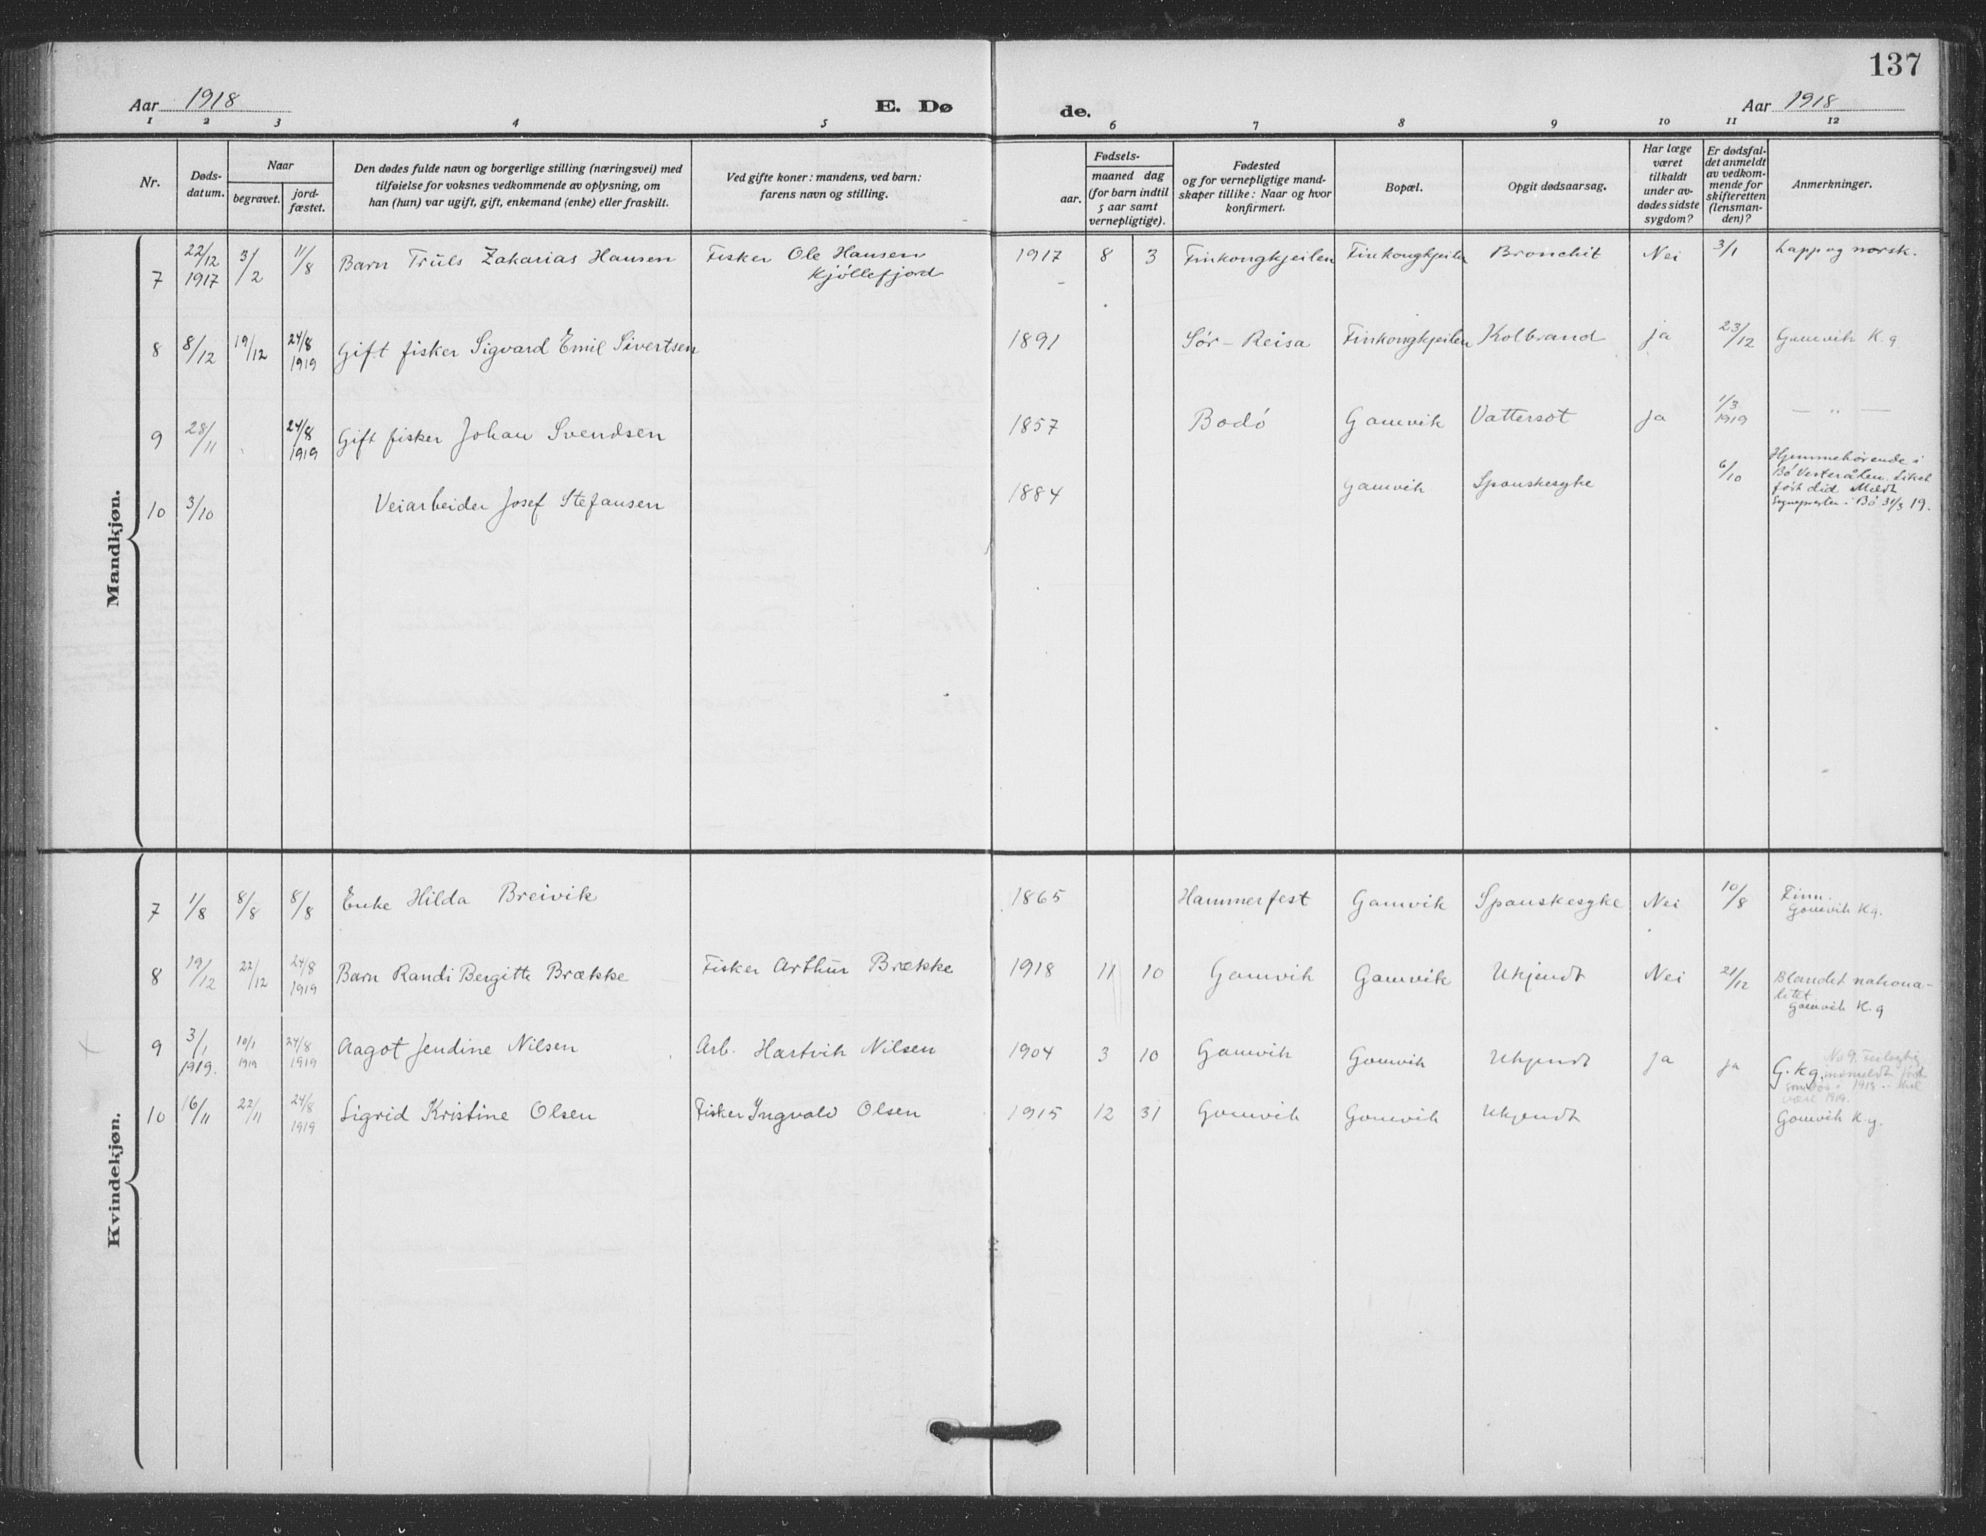 137
Aar 1918 E. Dø de. Aar 1918
1 2 3 4 5 6 7 8 9 10 11 12
Nr.
Døds-
datum.
Naar
begravet.
jord-
fæstet.
Den dødes fulde navn og borgerlige stilling (næringsvei) med
tilføielse for voksnes vedkommende av oplysning, om
han (hun) var ugift, gift, enkemand (enke) eller fraskilt.
Ved gifte koner: mandens, ved barn:
farens navn og stilling.
Fødsels-
aar.
maaned dag
(for barn indtil
5 aar samt
vernepligtige).
Fødested
og for vernepligtige mand-
skaper tillike: Naar og hvor
konfirmert.
Bopæl.
Opgit dødsaarsag.
Har læge
været
tilkaldt
under av-
dødes sidste
sygdom?
Er dødsfal-
det anmeldt
av vedkom-
mende for
skifteretten
(lensman-
den)?
Anmerkninger.
Mandkjøn.
7 22/12 1917 3/2 11/8 Barn Truls Zakarias Hansen Fisker Ole Hansen Kjøllefjord 1917 8 3 Finkongkjeilen Finkongkjeilen Bronchit Nei 3/1 Lapp og norsk.
8 8/12 19/12 24/8 1919 Gift fisker Sigvard Emil Sivertsen 1891 Sør-Reisa Finkongkjeilen Kolbrand ja 23/12 Gamvik K.g
9 28/11 24/8 1919 Gift fisker Johan Svendsen 1857 Bodó Gamvik Vattersot ja 1/3 1919 — " —
10 3/10 Veiarbeider Josef Stefansen 1884 Gamvik Spanskesyke 6/10 Hjemmehørende i
Bø Vesterålen. Liket
ført did Meldt
sognepresten i Bø 31/3 19.
Kvindekjøn.
7 1/8 8/8 8/8 Enke Hilda Breivik 1865 Hammerfest Gamvik Spanskesyke Nei 10/8 Finn.
Gamvik Kg.
8 19/12 22/12 24/8 1919 Barn Randi Bergitte Brække Fisker Arthur Brække 1918 11 10 Gamvik Gamvik Ukjendt Nei 21/12 Blandet nationa-
litet
Gamvik K.g
9 3/1 1919. 10/1 1919 24/8 1919 Aagot Jendine Nilsen Arb. Hartvik Nilsen 1904 3 10 Gamvik Gamvik Ukjendt ja ja G.kg. No 9. Feilagtig
10 16/11 22/11 24/8 1919 Sigrid Kristine Olsen Fisker Ingvald Olsen 1915 12 31 Gamvik Gamvik Ukjendt Gamvik K.g.